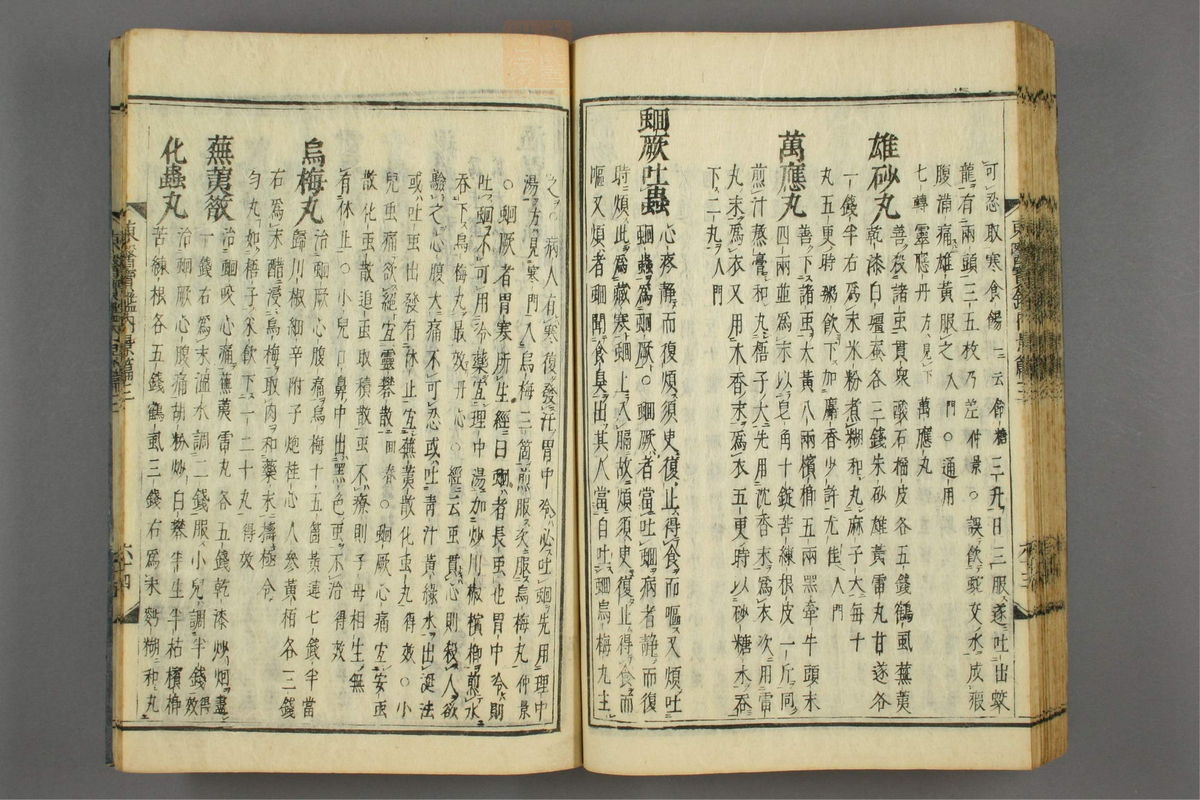 可忍取寒食餳一云餔糖三升日三服遂吐出蛟
龍有兩頭三五枚乃差仲景○誤飮蛇交水成瘕
腹滿痛雄黃服之入門○通用
七轉靈應丹方見下萬應丸
雄砂丸善殺諸虫貫衆酸石榴皮各五錢鶴虱蕪荑
乾漆白殭蚕各三錢朱砂雄黃雷丸甘遂各
一錢半右爲末米粉煮糊和丸麻子大每十
丸五更時粥飮下加麝香少許尤佳入門
萬應丸善下諸虫大黃八兩檳榔五兩黑牽牛頭末
四兩並爲末以皂角十錠苦練根皮一斤同
煎汁熬膏和丸梧子大先用沈香末爲衣次用雷
丸末爲衣又用木香末爲衣五更時以砂糖水吞
下二丸入門
蛔厥吐蟲心疼靜而復煩須臾復止得食而嘔又煩吐
蛔蟲爲蛔厥○蛔厥者當吐蛔病者靜而復
時煩此爲藏寒蛔上入膈故煩須臾復止得食而
嘔又煩者蛔聞食臭出其人當自吐蛔烏梅丸主
之○病人有寒復發汗胃中冷必吐蛔先用理中
湯方見寒門入烏梅三箇煎服灸服烏梅丸仲景
○蛔厥者胃寒所生經曰蛔者長虫也胃中冷則
吐蛔不可用冷藥宜理中湯加炒川椒檳榔煎水
吞下烏梅丸最效丹心○經云虫貫心則殺人欲
驗之心腹大痛不可忍或吐靑汁黃綠水出涎沫
或吐虫出發有休止宜蕪荑散化虫丸得效○小
兒虫痛欲絕宜靈礬散回春○蛔厥心痛宜安虫
散化虫散追虫取積散虫不療則子母相生無
有休止○小兒口鼻中出黑色虫不治得效
烏梅丸治蛔厥心腹痛烏梅十五箇黃連七錢半當
歸川椒細辛附子炮桂心人參黃栢各三錢
右爲末醋浸烏梅取肉和藥末擣極令
勻丸如梧子米飮下一二十丸得效
蕪荑散治蛔咬心痛蕪荑雷丸各五錢乾漆炒烟盡
一錢右爲末溫水調二錢服小兒調半錢得效
化蟲丸治蛔厥心腹痛胡粉炒白礬半生半枯檳榔
苦練根各五錢鶴虱三錢右爲末麪糊和丸
東醫寶鑑內景篇之三
六十三
東醫寶鑑內景篇之三
六十四